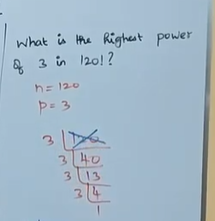 What is the highest power
of 3 in 120!?
n = 120
p = 3
3 120
3 40
3 13
3 4
1